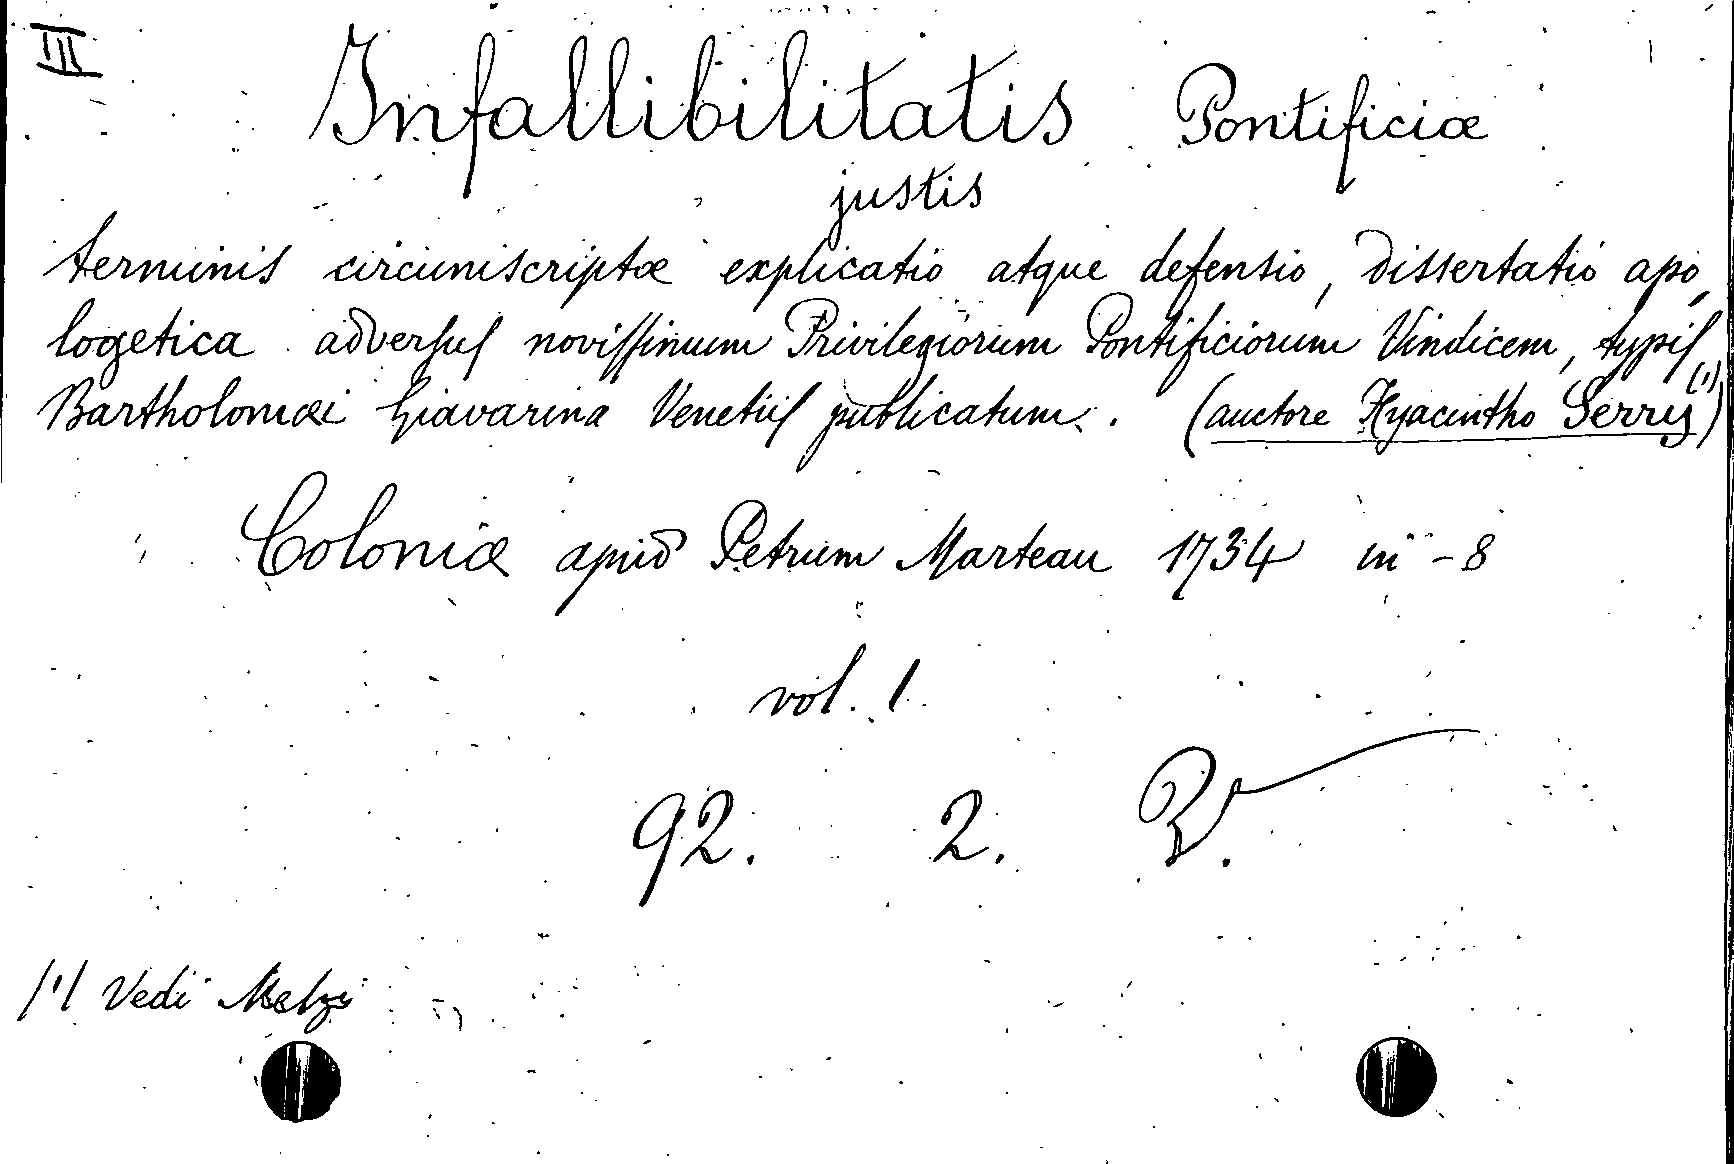 III
Infallibilitatis Pontificiæ
justis
terminis circumscriptæ explicatio atque defensio, dissertatio apo,
logetica adversus novissimum Privilegiorum Pontificiorum Vindicem, typis
Bartholomæi Giavarina Venetiis publicatum. (auctore Hyacintho Serry (1))
Coloniæ apud Petrum Marteau 1734 in-8
vol. 1
92. 2.
(1) Vedi Melzi